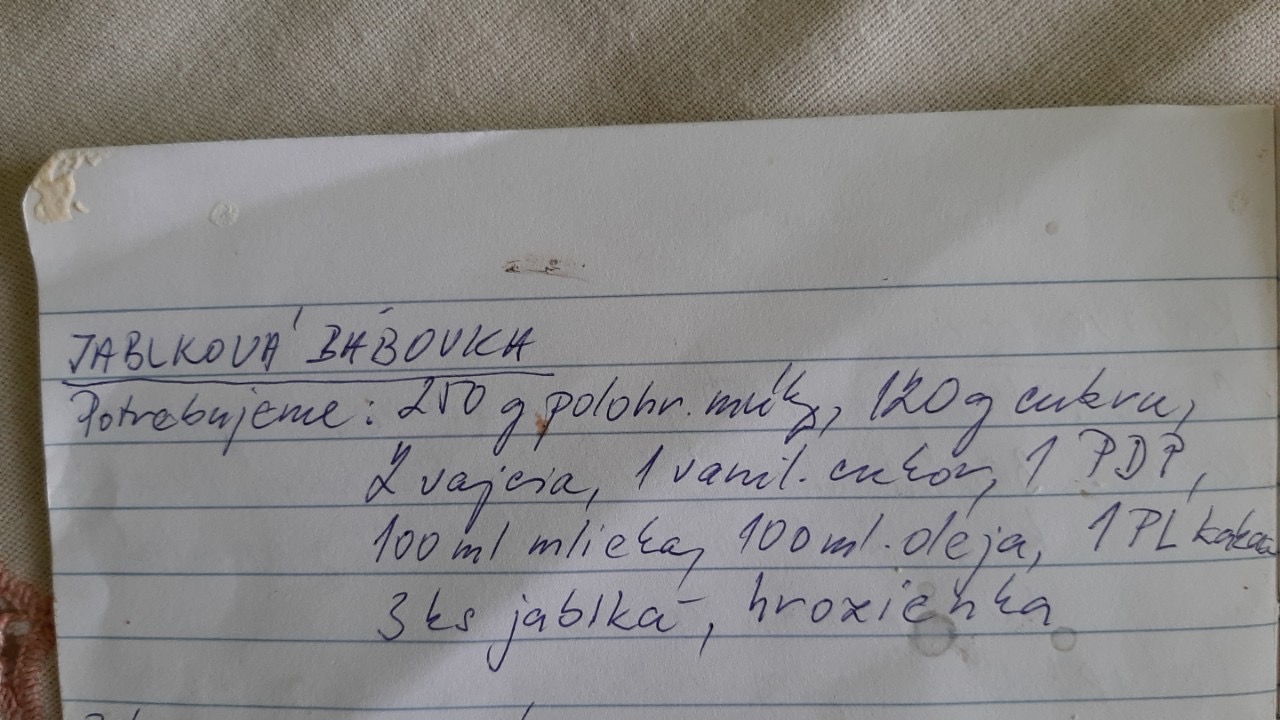 JABLKOVÁ BÁBOVKA
Potrebujeme: 250 g polohr. múky, 120 g cukru,
2 vajcia, 1 vanil. cukor, 1 PDP,
100 ml mlieka, 100 ml. oleja, 1 PL kakaa
3 ks jablká, hrozienka